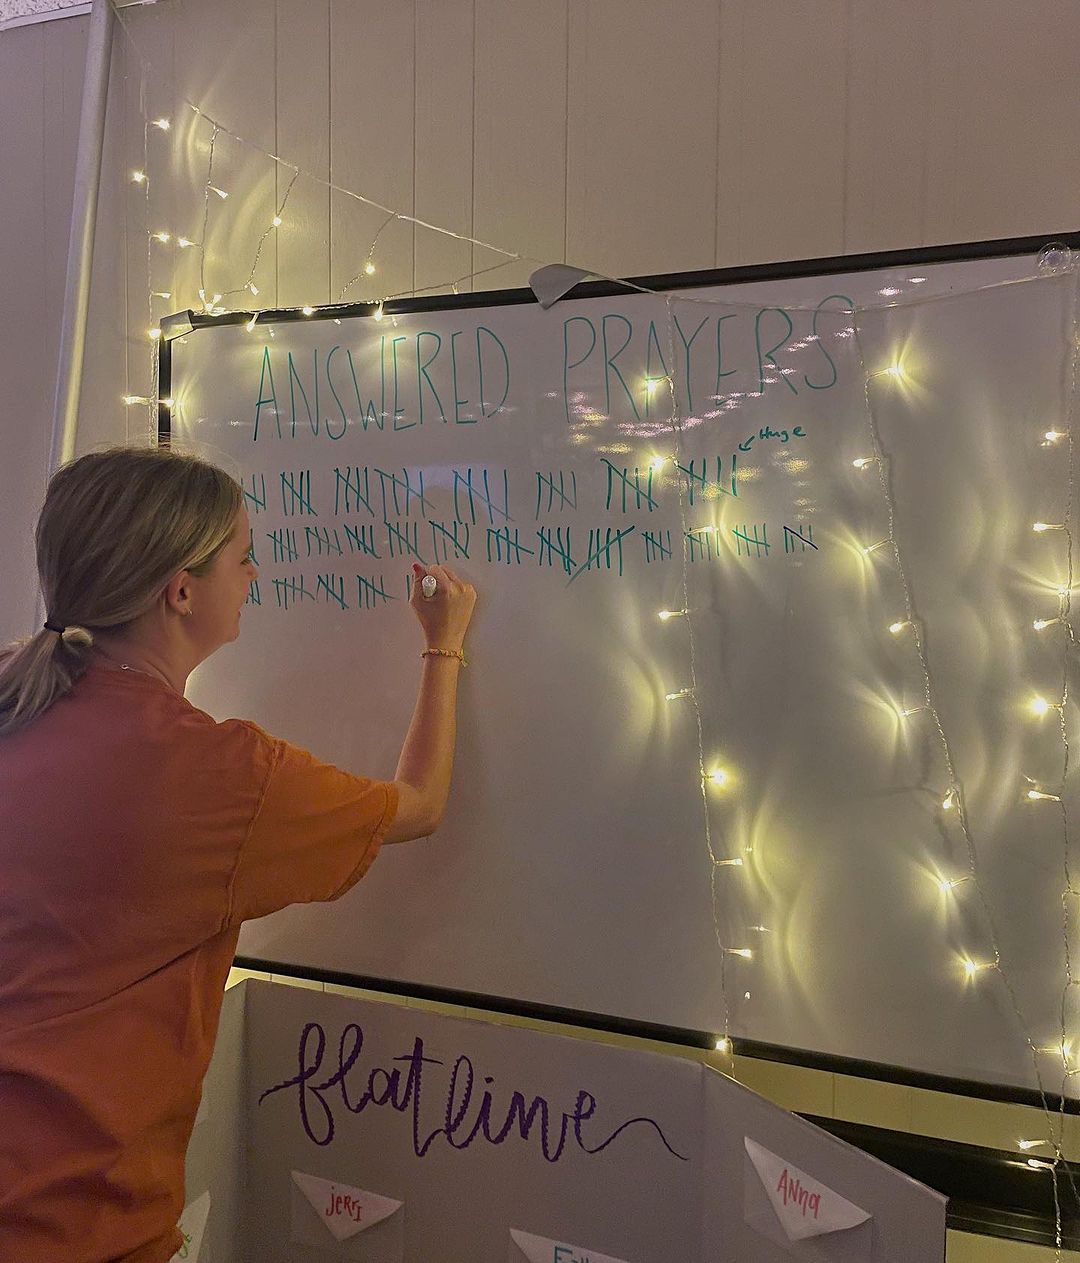 ANSWERED PRAYERS
Huge
flatline
jerri
Anna